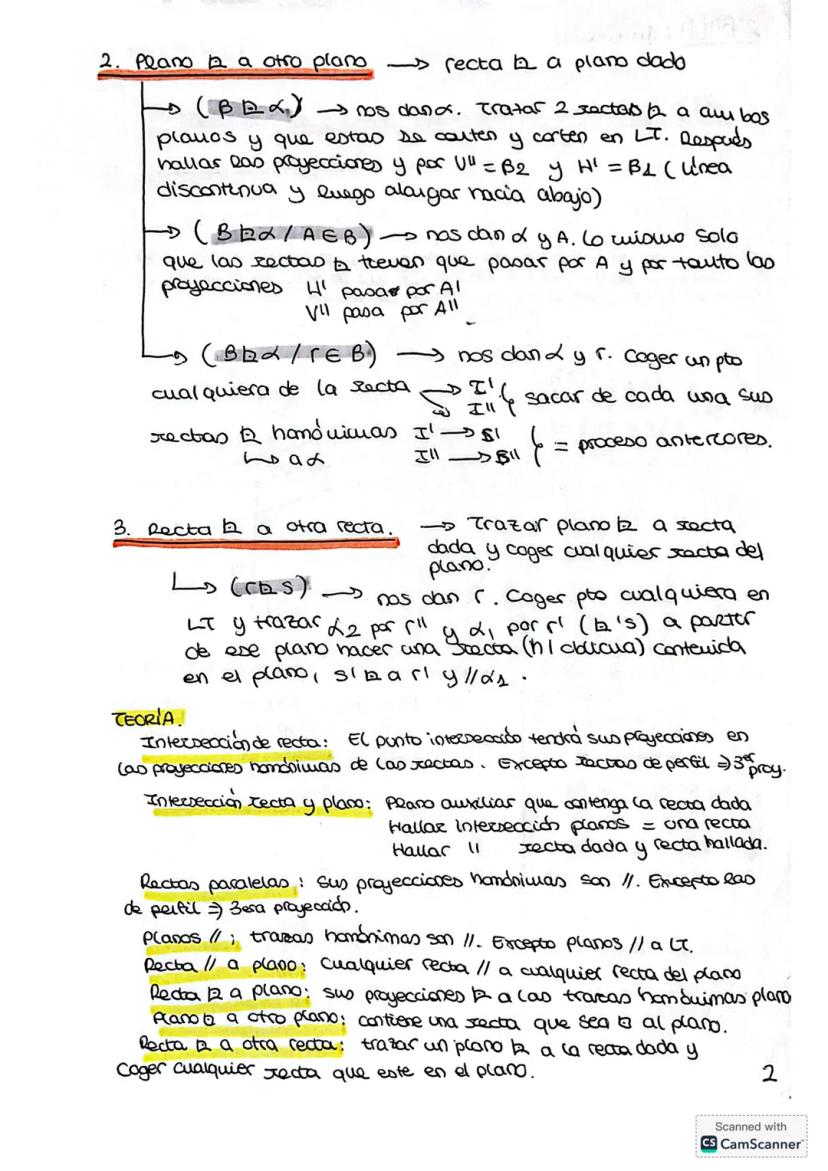 2. Plano ⊾ a otro plano → recta ⊾ a plano dado
→ (β ⊾ α) → nos dan α. Trazar 2 rectas ⊾ a ambos
planos y que estas se corten y corten en LT. Después
hallar las proyecciones y por V'' = β2 y H' = β1 (línea
discontinua y luego alargar hacia abajo)
→ (β ⊾ α / A ∈ β) → nos dan α y A. Lo mismo solo
que las rectas ⊾ tienen que pasar por A y por tanto las
proyecciones H' pasa por A'
V'' pasa por A''
→ (β ⊾ α / r ∈ β) → nos dan α y r. Coger un pto
cualquiera de la recta → I'
→ I'' } sacar de cada una sus
rectas ⊾ homónimas I' → s'
↳ a α I'' → s'' } = proceso anteriores.
3. Recta ⊾ a otra recta. → Trazar plano ⊾ a recta
dada y coger cualquier recta del
plano.
↳ (r ⊾ s) → nos dan r. Coger pto cualquiera en
LT y trazar α2 por r'' y α1 por r' (⊾'s) a partir
de ese plano hacer una recta (h / oblicua) contenida
en el plano, s' ⊾ a r' y // α1.
TEORÍA.
Intersección de recta: El punto intersección tendrá sus proyecciones en
las proyecciones homónimas de las rectas. Excepto rectas de perfil ⇒ 3ª proy.
Intersección recta y plano: Plano auxiliar que contenga la recta dada
Hallar intersección planos = una recta
Hallar '' recta dada y recta hallada.
Rectas paralelas: sus proyecciones homónimas son //. Excepto las
de perfil ⇒ 3era proyección.
Planos //; trazas homónimas son //. Excepto planos // a LT.
Recta // a plano: Cualquier recta // a cualquier recta del plano
Recta ⊾ a plano: sus proyecciones ⊾ a las trazas homónimas plano
Plano ⊾ a otro plano: contiene una recta que sea ⊾ al plano.
Recta ⊾ a otra recta: trazar un plano ⊾ a la recta dada y
coger cualquier recta que este en el plano.
2
Scanned with
CS CamScanner